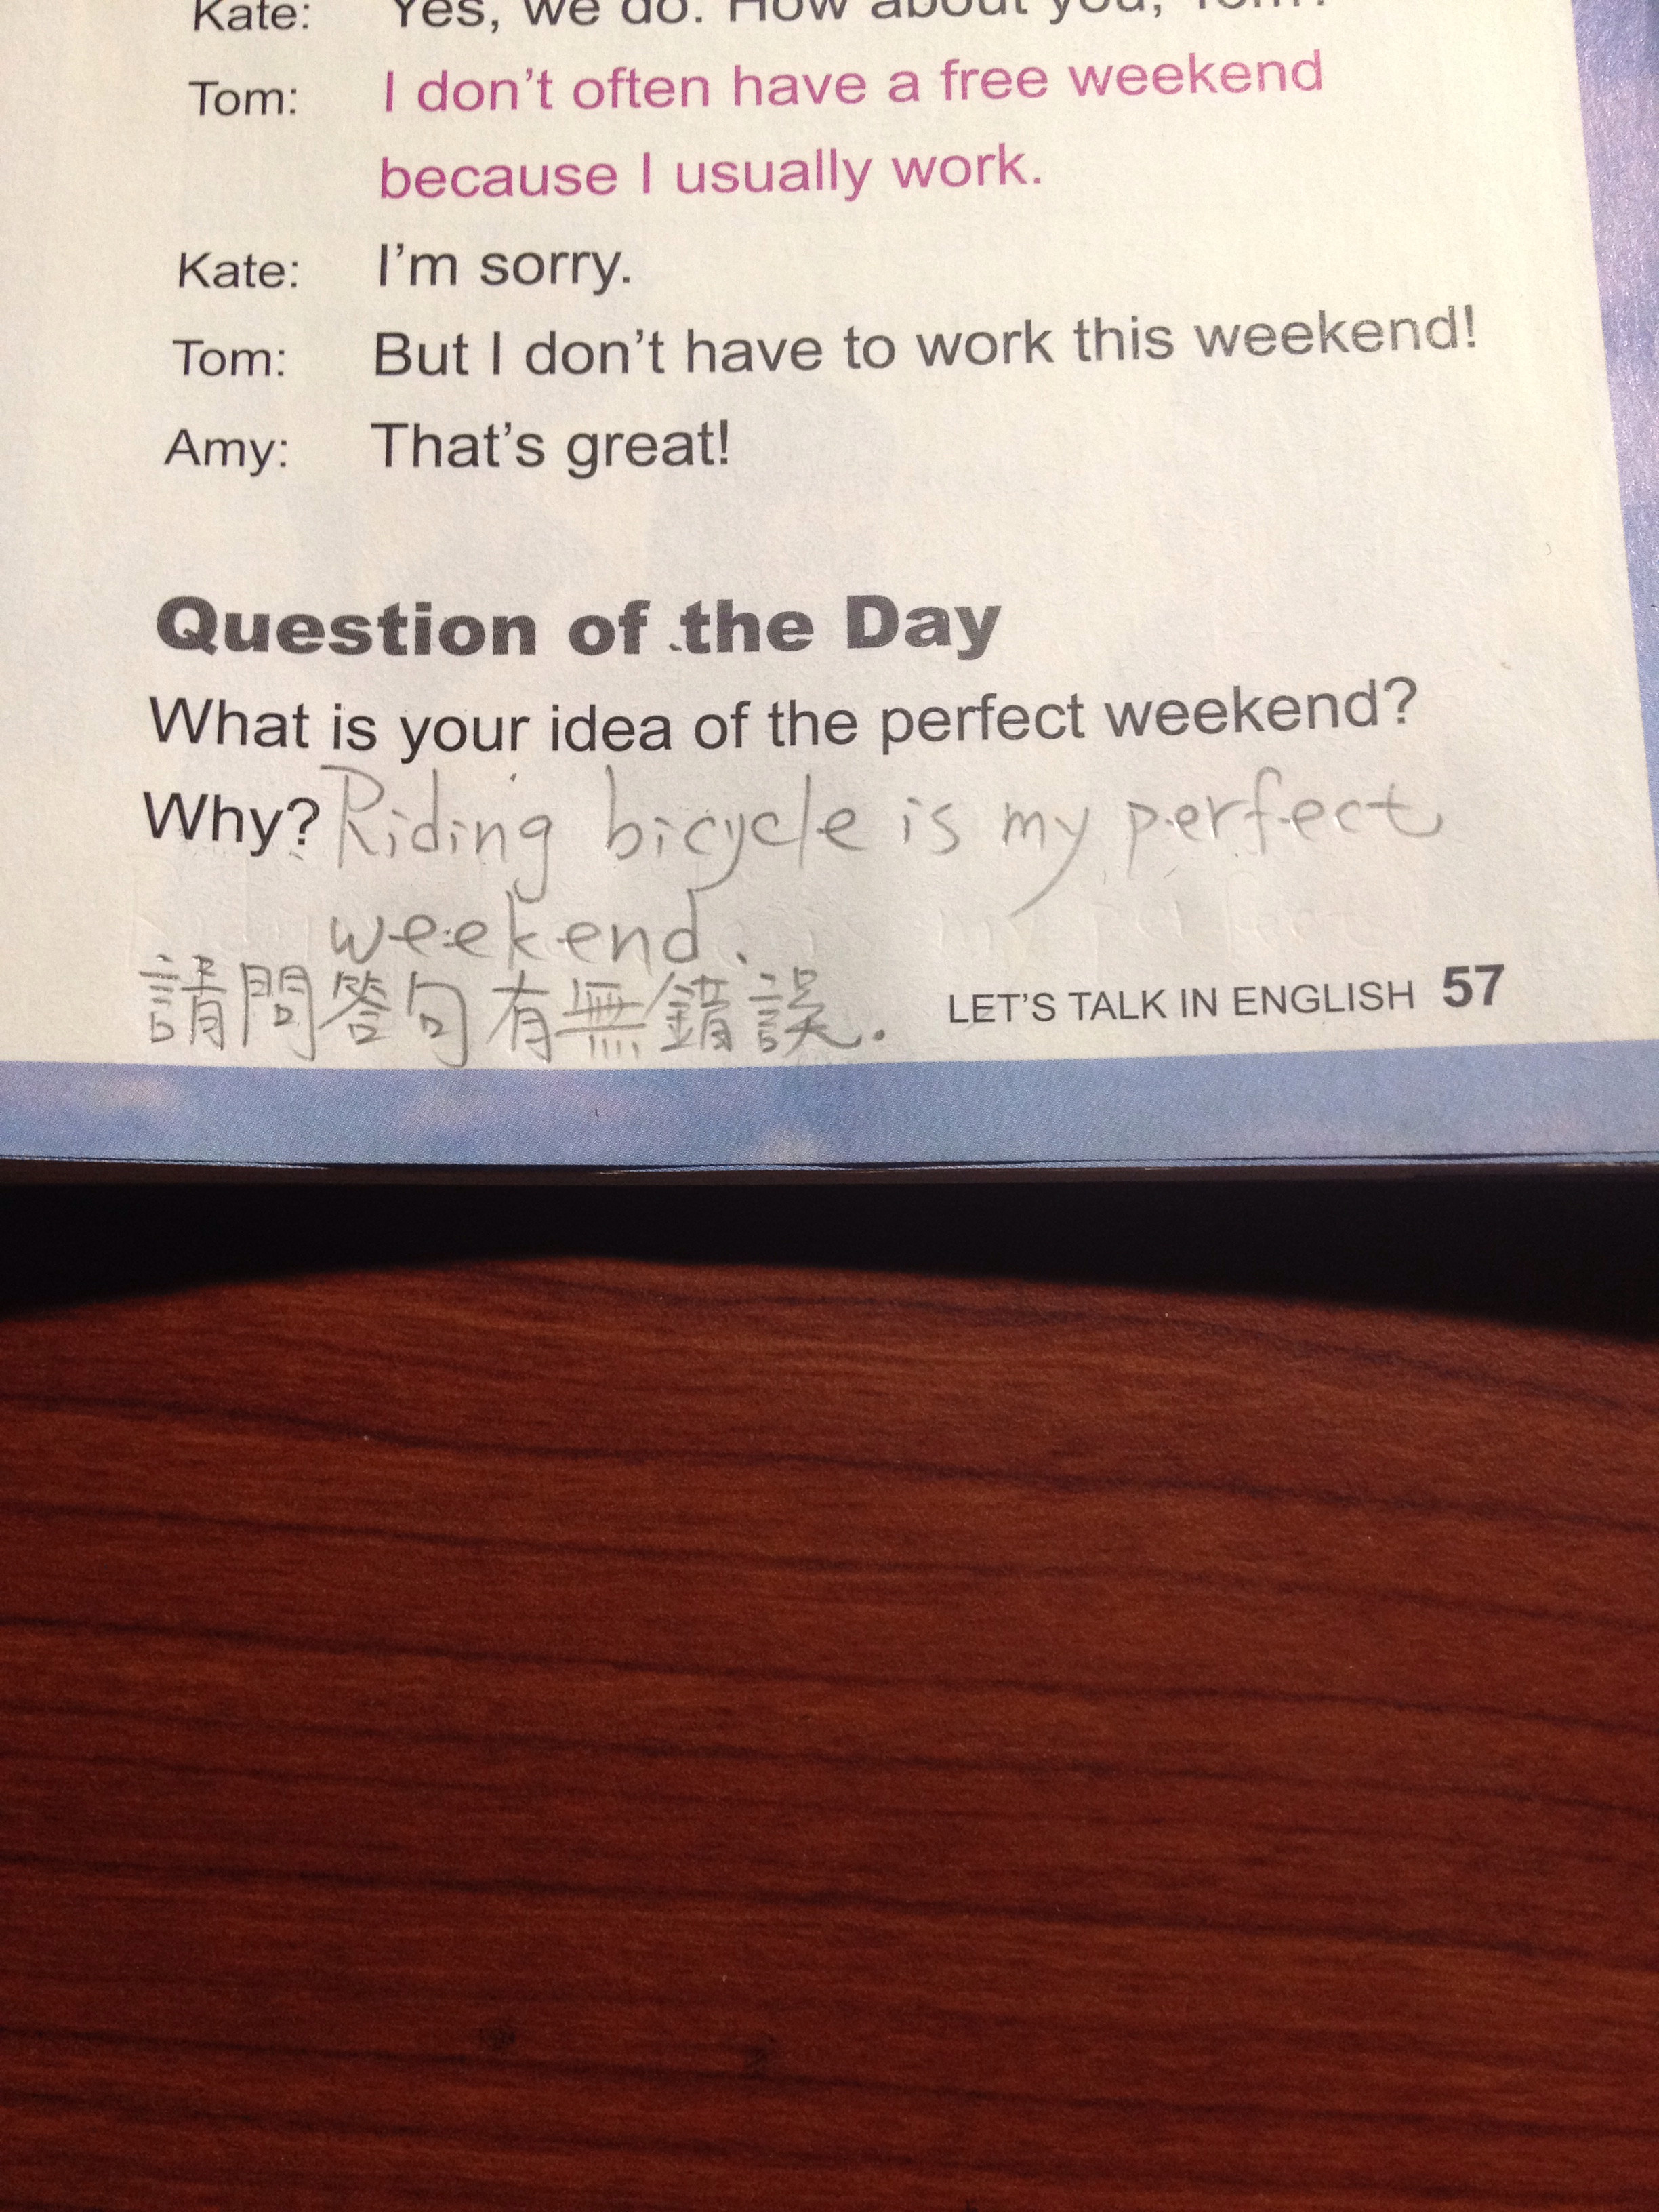 Kate: Yes, we do. How about you, Tom?
Tom: I don't often have a free weekend
because I usually work.
Kate: I'm sorry.
Tom: But I don't have to work this weekend!
Amy: That's great!
Question of the Day
What is your idea of the perfect weekend?
Why? Riding bicycle is my perfect
weekend.
請問答句有無錯誤.
LET'S TALK IN ENGLISH 57